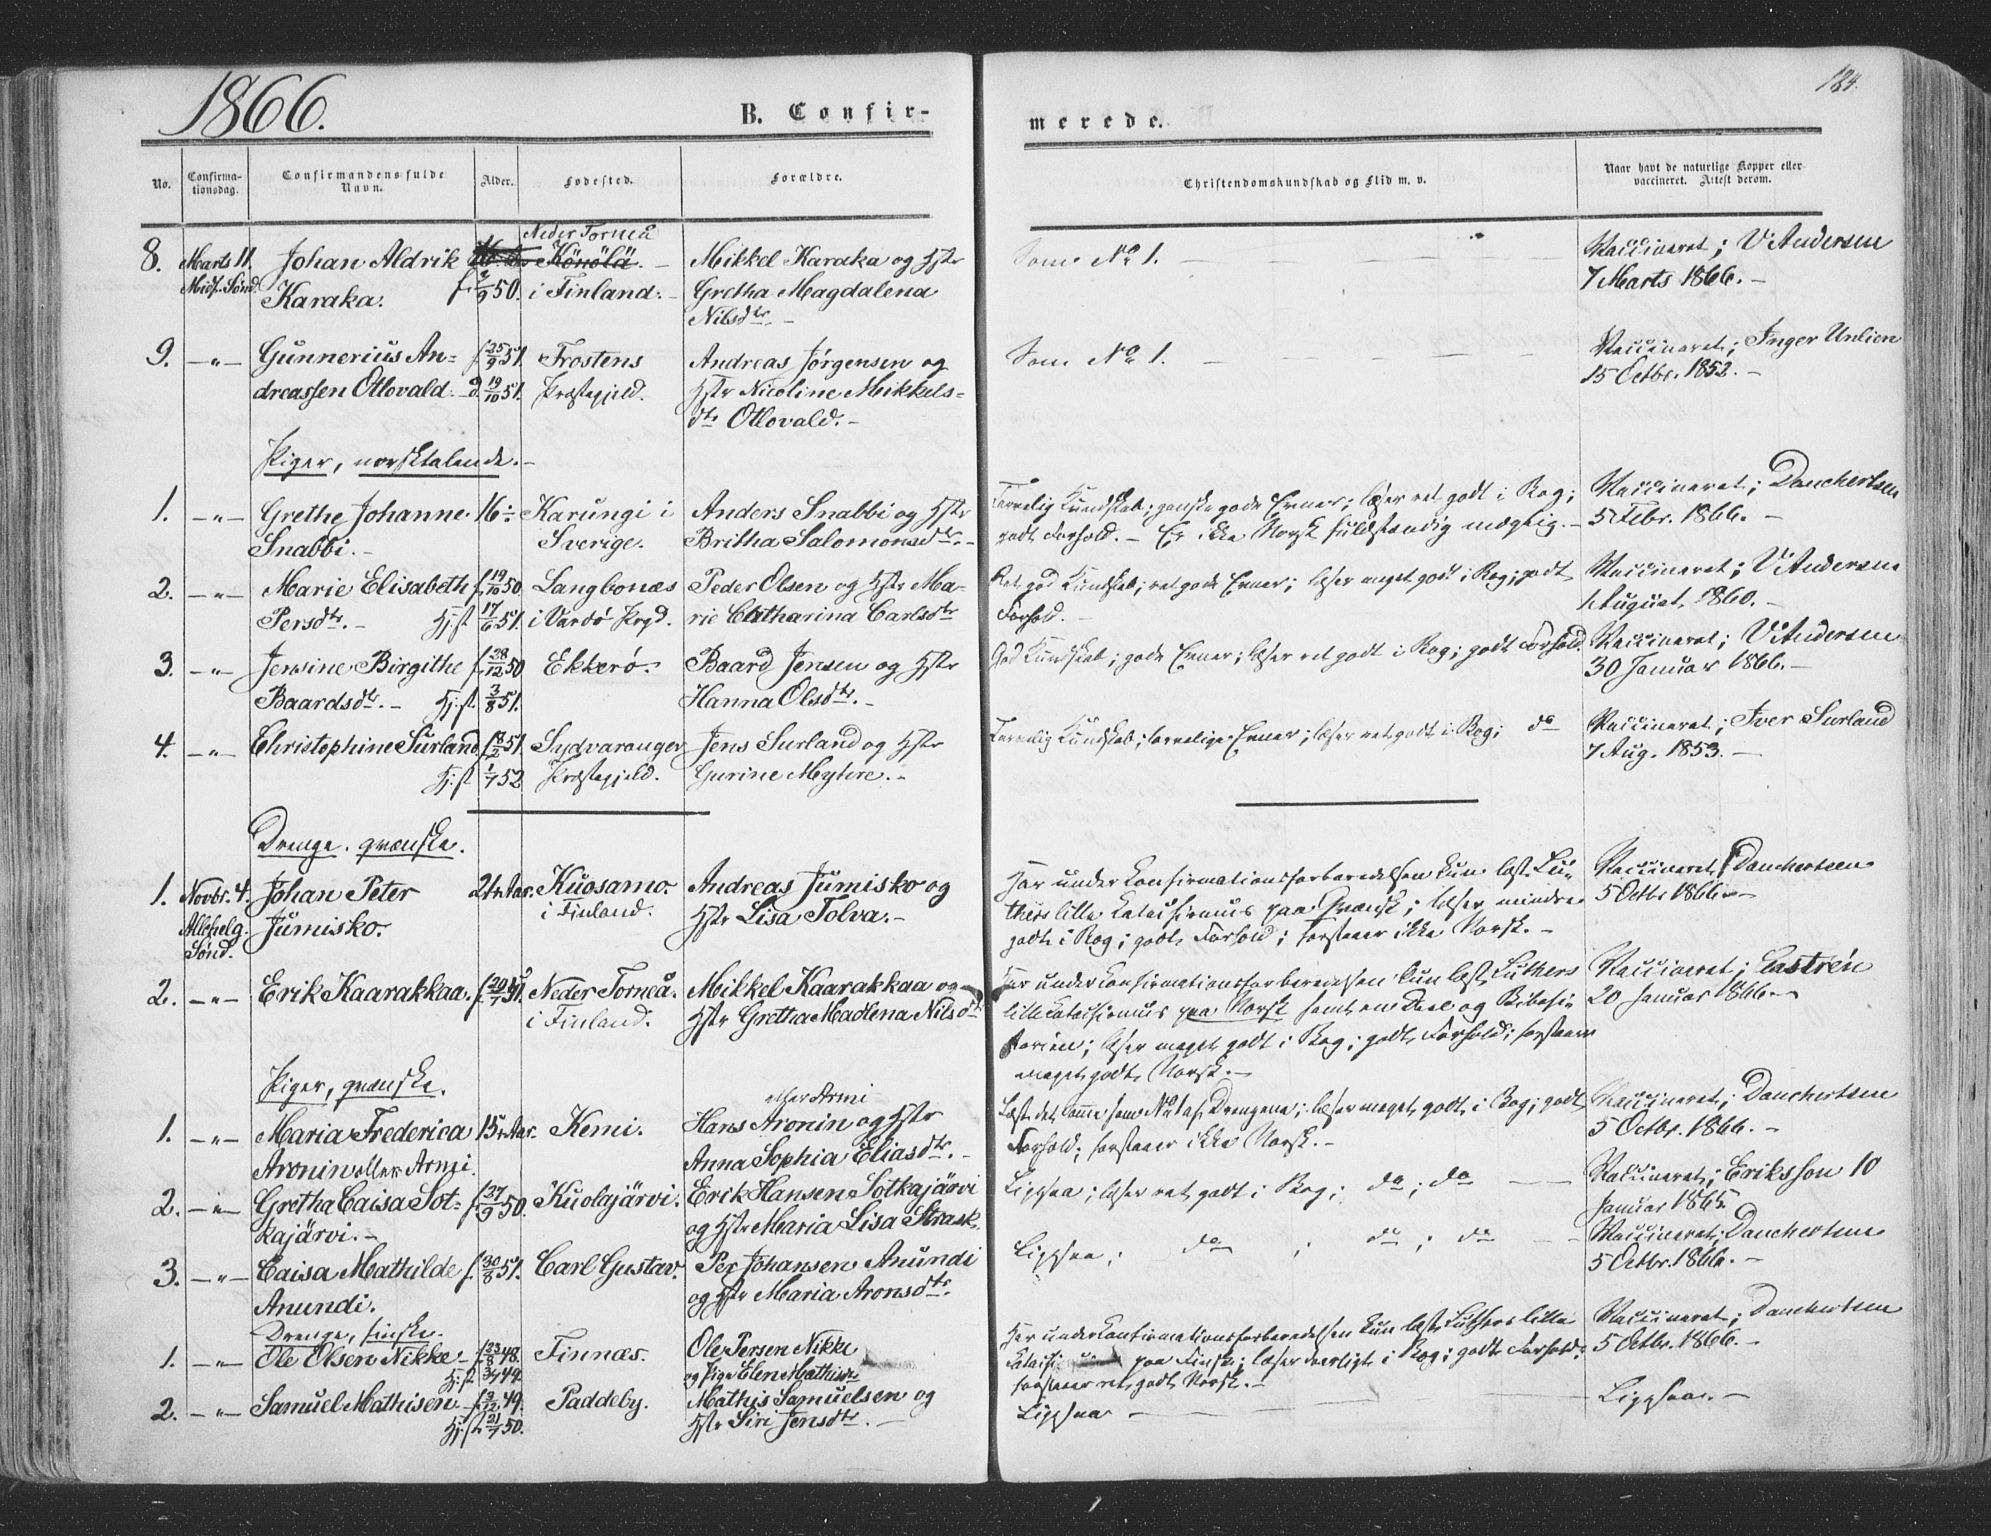 1866.
B. Confir-
merede.
124.
No.
Confirma-
tionsdag.
Confirmandens fulde
Navn.
Alder.
Fødested.
Forældre.
Christendomskundskab og Flid m. v.
Naar havt de naturlige Kopper eller
vaccineret. Attest derom.
Neder Torneå
8. Marts 11. Johan Aldrik Könölä. Mikkel Karaka og Hstr Som No 1. Vaccineret; V Andersen
Midf. Sønd. Karaka. f. 2/9 50. i Finland. Gretha Magdalena 7 Marts 1866.
Nilsdtr.
9. -"- Gunnerius An- f. 25/9 51. Frostens Andreas Jørgensen og Som No 1. Vaccineret; Inger Unlien
dreassen Otlovald. d. 19/10 51. Præstegjeld. Hstr Nicoline Mikkels- 15 Octbr. 1852.
dtr Otlovald.
Piger, norsktalende.
1. -"- Grethe Johanne 16 Karungi i Anders Snabbi og Hstr Tarvelig Kundskab; ganske gode Evner; læser ret godt i Bog; Vaccineret; Danchertsen
Snabbi. Sverige. Britha Salomonsdtr. godt Forhold. - Er ikke Norsk fuldstændig mægtig. 5 Febr. 1866.
2. -"- Marie Elisabeth f. 19/10 50 Langbonæs Peder Olsen og Hstr Ma- Ret god Kundskab; ret gode Evner; læser meget godt i Bog; godt Vaccineret; V Andersen
Persdtr. Hj. st. 17/6 51. i Vardö Prgd. rie Catharina Carlsdtr Forhold. 1 August 1860.
3. -"- Jensine Birgithe f. 28/12 50 Ekkerø. Baard Jensen og Hstr God Kundskab; gode Evner; læser ret godt i Bog; godt Forhold. Vaccineret; V Andersen
Baardsdtr. Hj. st. 3/8 51. Hanna Olsdtr. 30 Januar 1866.
4. -"- Christophine Surland f. 51. Sydvaranger Jens Surland og Hstr Tarvelig Kundskab; tarvelige Evner; læser ret godt i Bog; do Vaccineret; Iver Surland
Hj. st. 1/7 52 Præstegjeld. Gurine Mytere. 7 Aug. 1853.
Drenge, qvænske.
1. Novbr. 4. Johan Peter 21 Aar. Kuosamo. Andreas Jumisko og Har under Confirmationsforberedelsen kun læst Lu- Vaccineret; Danchertsen
Allehelg. Jumisko. i Finland. Hstr Lisa Tolva. thers lille Catechismus paa Qvænsk; læser mindre 5 Octbr 1866.
Sønd. godt i Bog; godt Forhold; forstaaer ikke Norsk.
2. -"- Erik Kaarakkaa. 51. Neder Torneå. Mikkel Kaarakkaa og Har under Confirmationsforberedelsen kun læst Luthers Vaccineret; Castrén
i Finland. Hstr Gretha Madlena Nilsdtr lille Catechismus paa Norsk samt en Deel og Bibelhi- 20 Januar 1866.
storien; læser meget godt i Bog; godt Forhold; forstaaer
meget godt Norsk.
Piger, qvænske.
eller Armi
1. -"- Maria Frederica 15 Aar. Kemi. Hans Aronin og Hstr Læst det samme som No 1 af Drengene; læser meget godt i Bog; godt Vaccineret; Danchertsen
Aronin eller Armi. Anna Sophia Eliasdtr. Forhold; forstaaer ikke Norsk. 5 Octbr. 1866.
2. -"- Gretha Caisa Sot- f. 27/9 50. Kuolajärvi. Erik Hansen Sotkajärvi Ligesaa; læser ret godt i Bog; do; do Vaccineret; Eriksson 10
kajärvi. og Hstr Maria Lisa Strask. Januar 1865.
3. -"- Caisa Mathilde f. 30/8 51. Carl Gustav. Per Johansen Anundi Ligesaa; do; do; do Vaccineret; Danchertsen
Anundi. og Hstr Maria Aronsdtr. 5 Octbr. 1866.
Drenge, finske.
1. -"- Ole Olsen Nikke f. 23/8 48. Finnæs. Ole Persen Nikke Har under Confirmationsforberedelsen kun læst Luthers lille Vaccineret; Danchertsen
Hj. st. 3/4 49. og Pige Elen Mathisdtr paa Finsk; læser maadeligt i Bog; godt Forhold; 5 Octbr. 1866.
forstaaer ret godt Norsk.
2. -"- Samuel Mathisen f. 2/12 49. Paddeby. Mathis Samuelsen og Ligesaa Ligesaa.
Hj. st. 21/7 50. Hstr Siri Jensdtr.